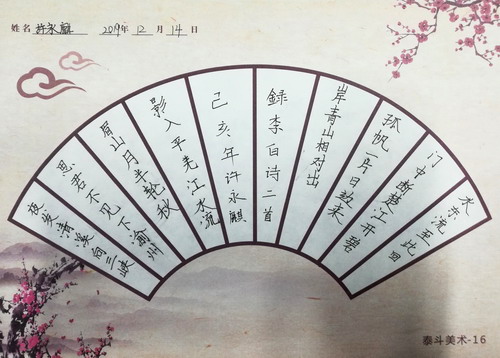 姓名 许永麒 2019年 12月 14日
水东流至此回
门中断楚江开碧
孤帆一片日边来
岸青山相对出
録李白诗二首
己亥年许永麒
影入平羌江水流
眉山月半轮秋
思君不见下渝州
夜发清溪向三峡
泰斗美术-16